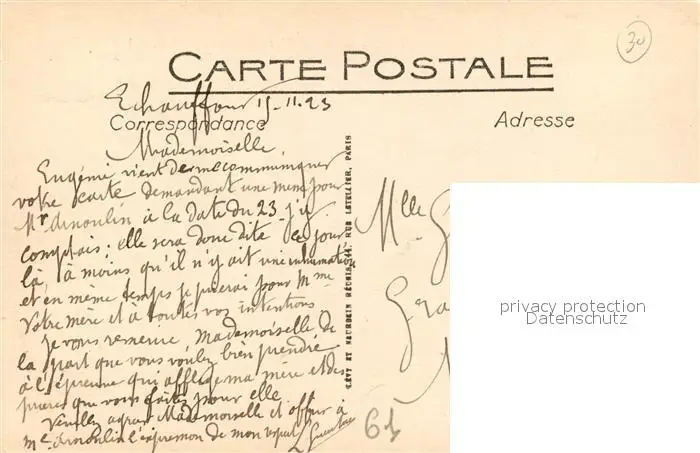 30
CARTE POSTALE
Echauffour 15-11-23
Correspondance
Adresse
Mademoiselle,
Eugénie vient de me communiquer
votre carte demandant une messe pour
Mr Arnoulin à la date du 23. j'y
comptais; elle sera donc dite ce jour
là, à moins qu'il n'y ait une inhumation
et en même temps je prierai pour Mme
votre mère et à toutes vos intentions
Je vous remercie, Mademoiselle de
la part que vous voulez bien prendre
à l'épreuve qui afflige ma mère et des
prières que vous faites pour elle
Veuillez agréer Mademoiselle et offrir à
Me Arnoulin l'expression de mon respect
LÉVY ET NEURDEIN RÉUNIS, 44, RUE LETELLIER, PARIS
Mlle G
Gra
61
privacy protection
Datenschutz